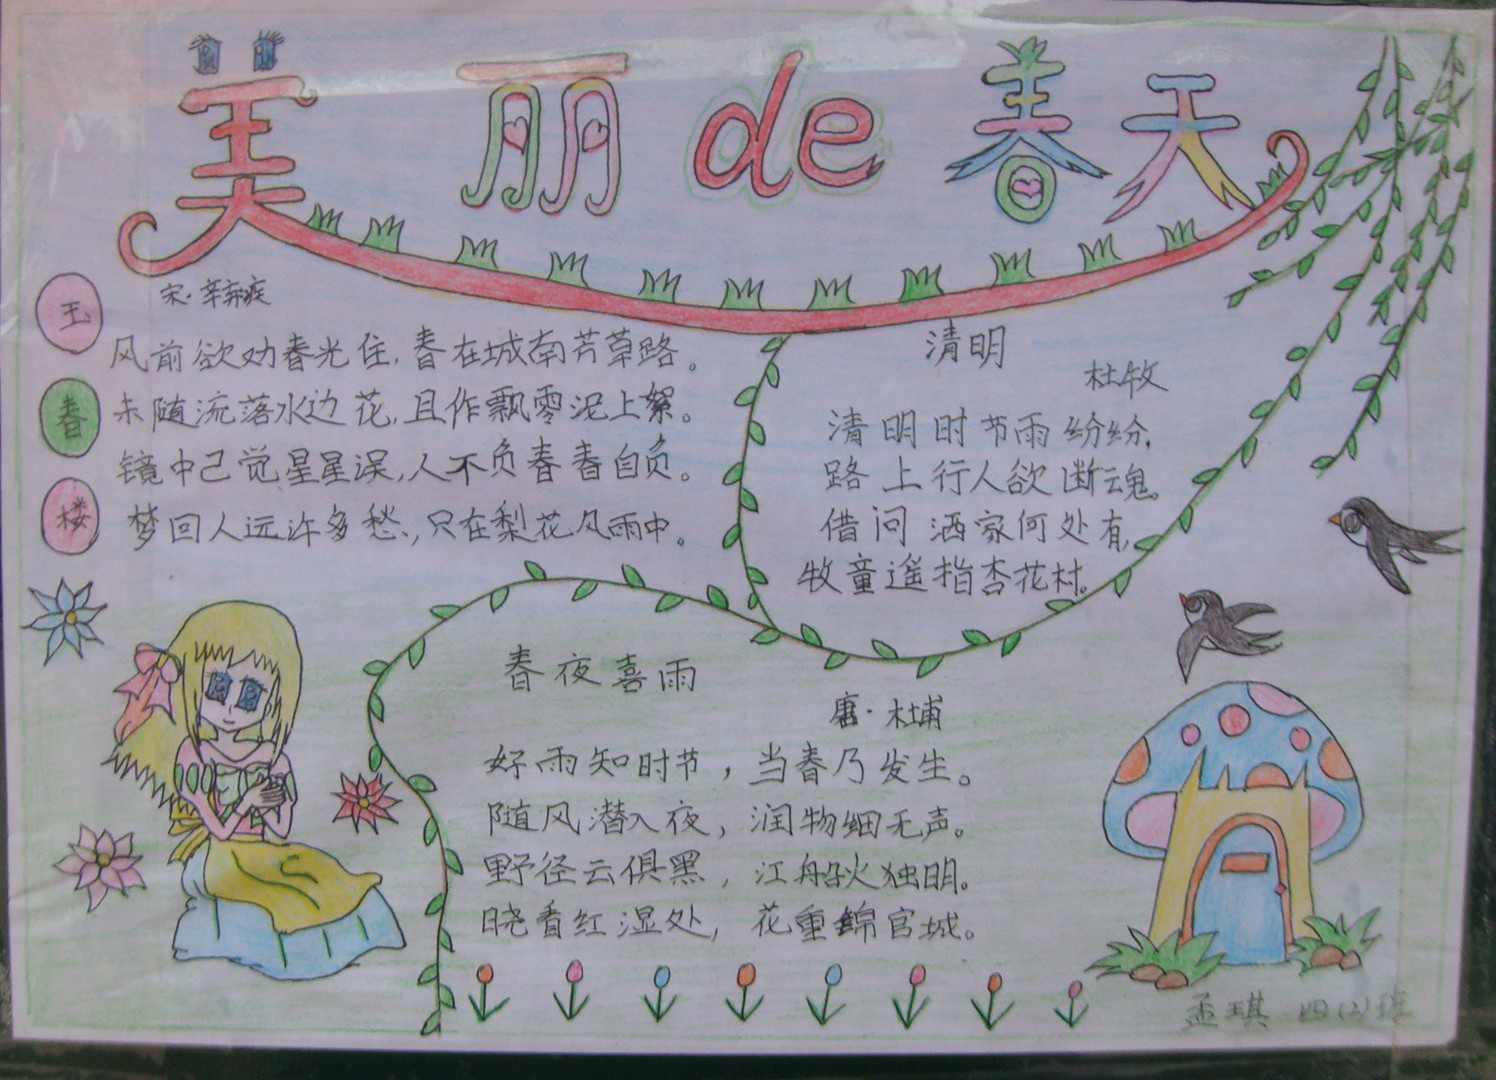 美丽de春天
玉春楼
宋·辛弃疾
风前欲劝春光住,春在城南芳草路。
未随流落水边花,且作飘零泥上絮。
镜中己觉星星误,人不负春春自负。
梦回人远许多愁,只在梨花风雨中。
清明
杜牧
清明时节雨纷纷,
路上行人欲断魂。
借问酒家何处有,
牧童遥指杏花村。
春夜喜雨
唐·杜甫
好雨知时节,当春乃发生。
随风潜入夜,润物细无声。
野径云俱黑,江船火独明。
晓看红湿处,花重锦官城。
孟琪 四(2)班